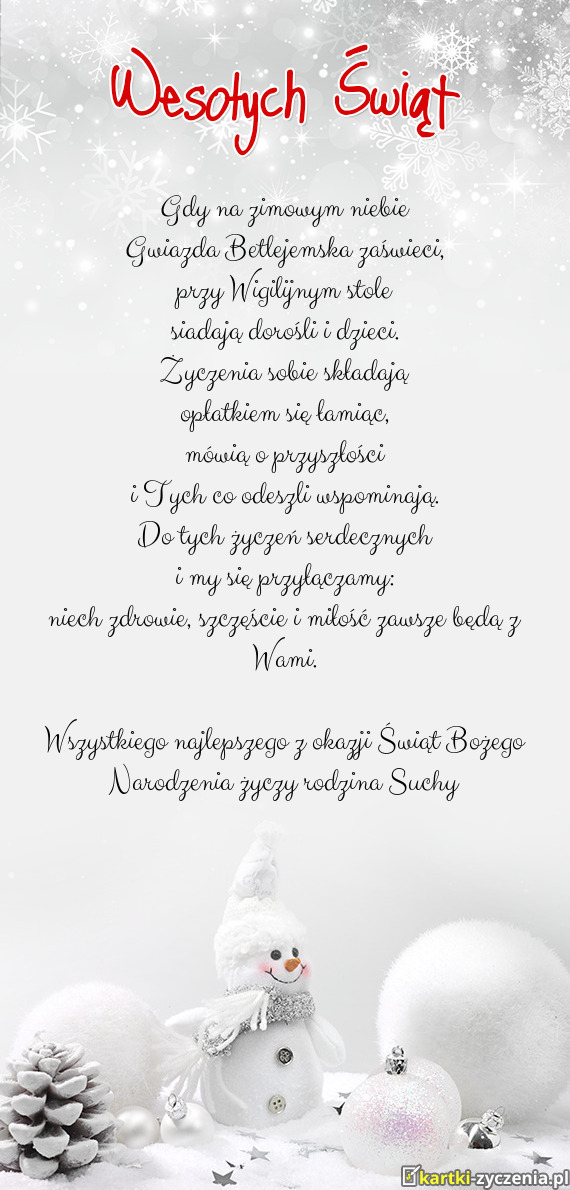 Wesołych Świąt
Gdy na zimowym niebie
Gwiazda Betlejemska zaświeci,
przy Wigilijnym stole
siadają dorośli i dzieci.
Życzenia sobie składają
opłatkiem się łamiąc,
mówią o przyszłości
i Tych co odeszli wspominają.
Do tych życzeń serdecznych
i my się przyłączamy:
niech zdrowie, szczęście i miłość zawsze będą z
Wami.
Wszystkiego najlepszego z okazji Świąt Bożego
Narodzenia życzy rodzina Suchy
kartki-zyczenia.pl